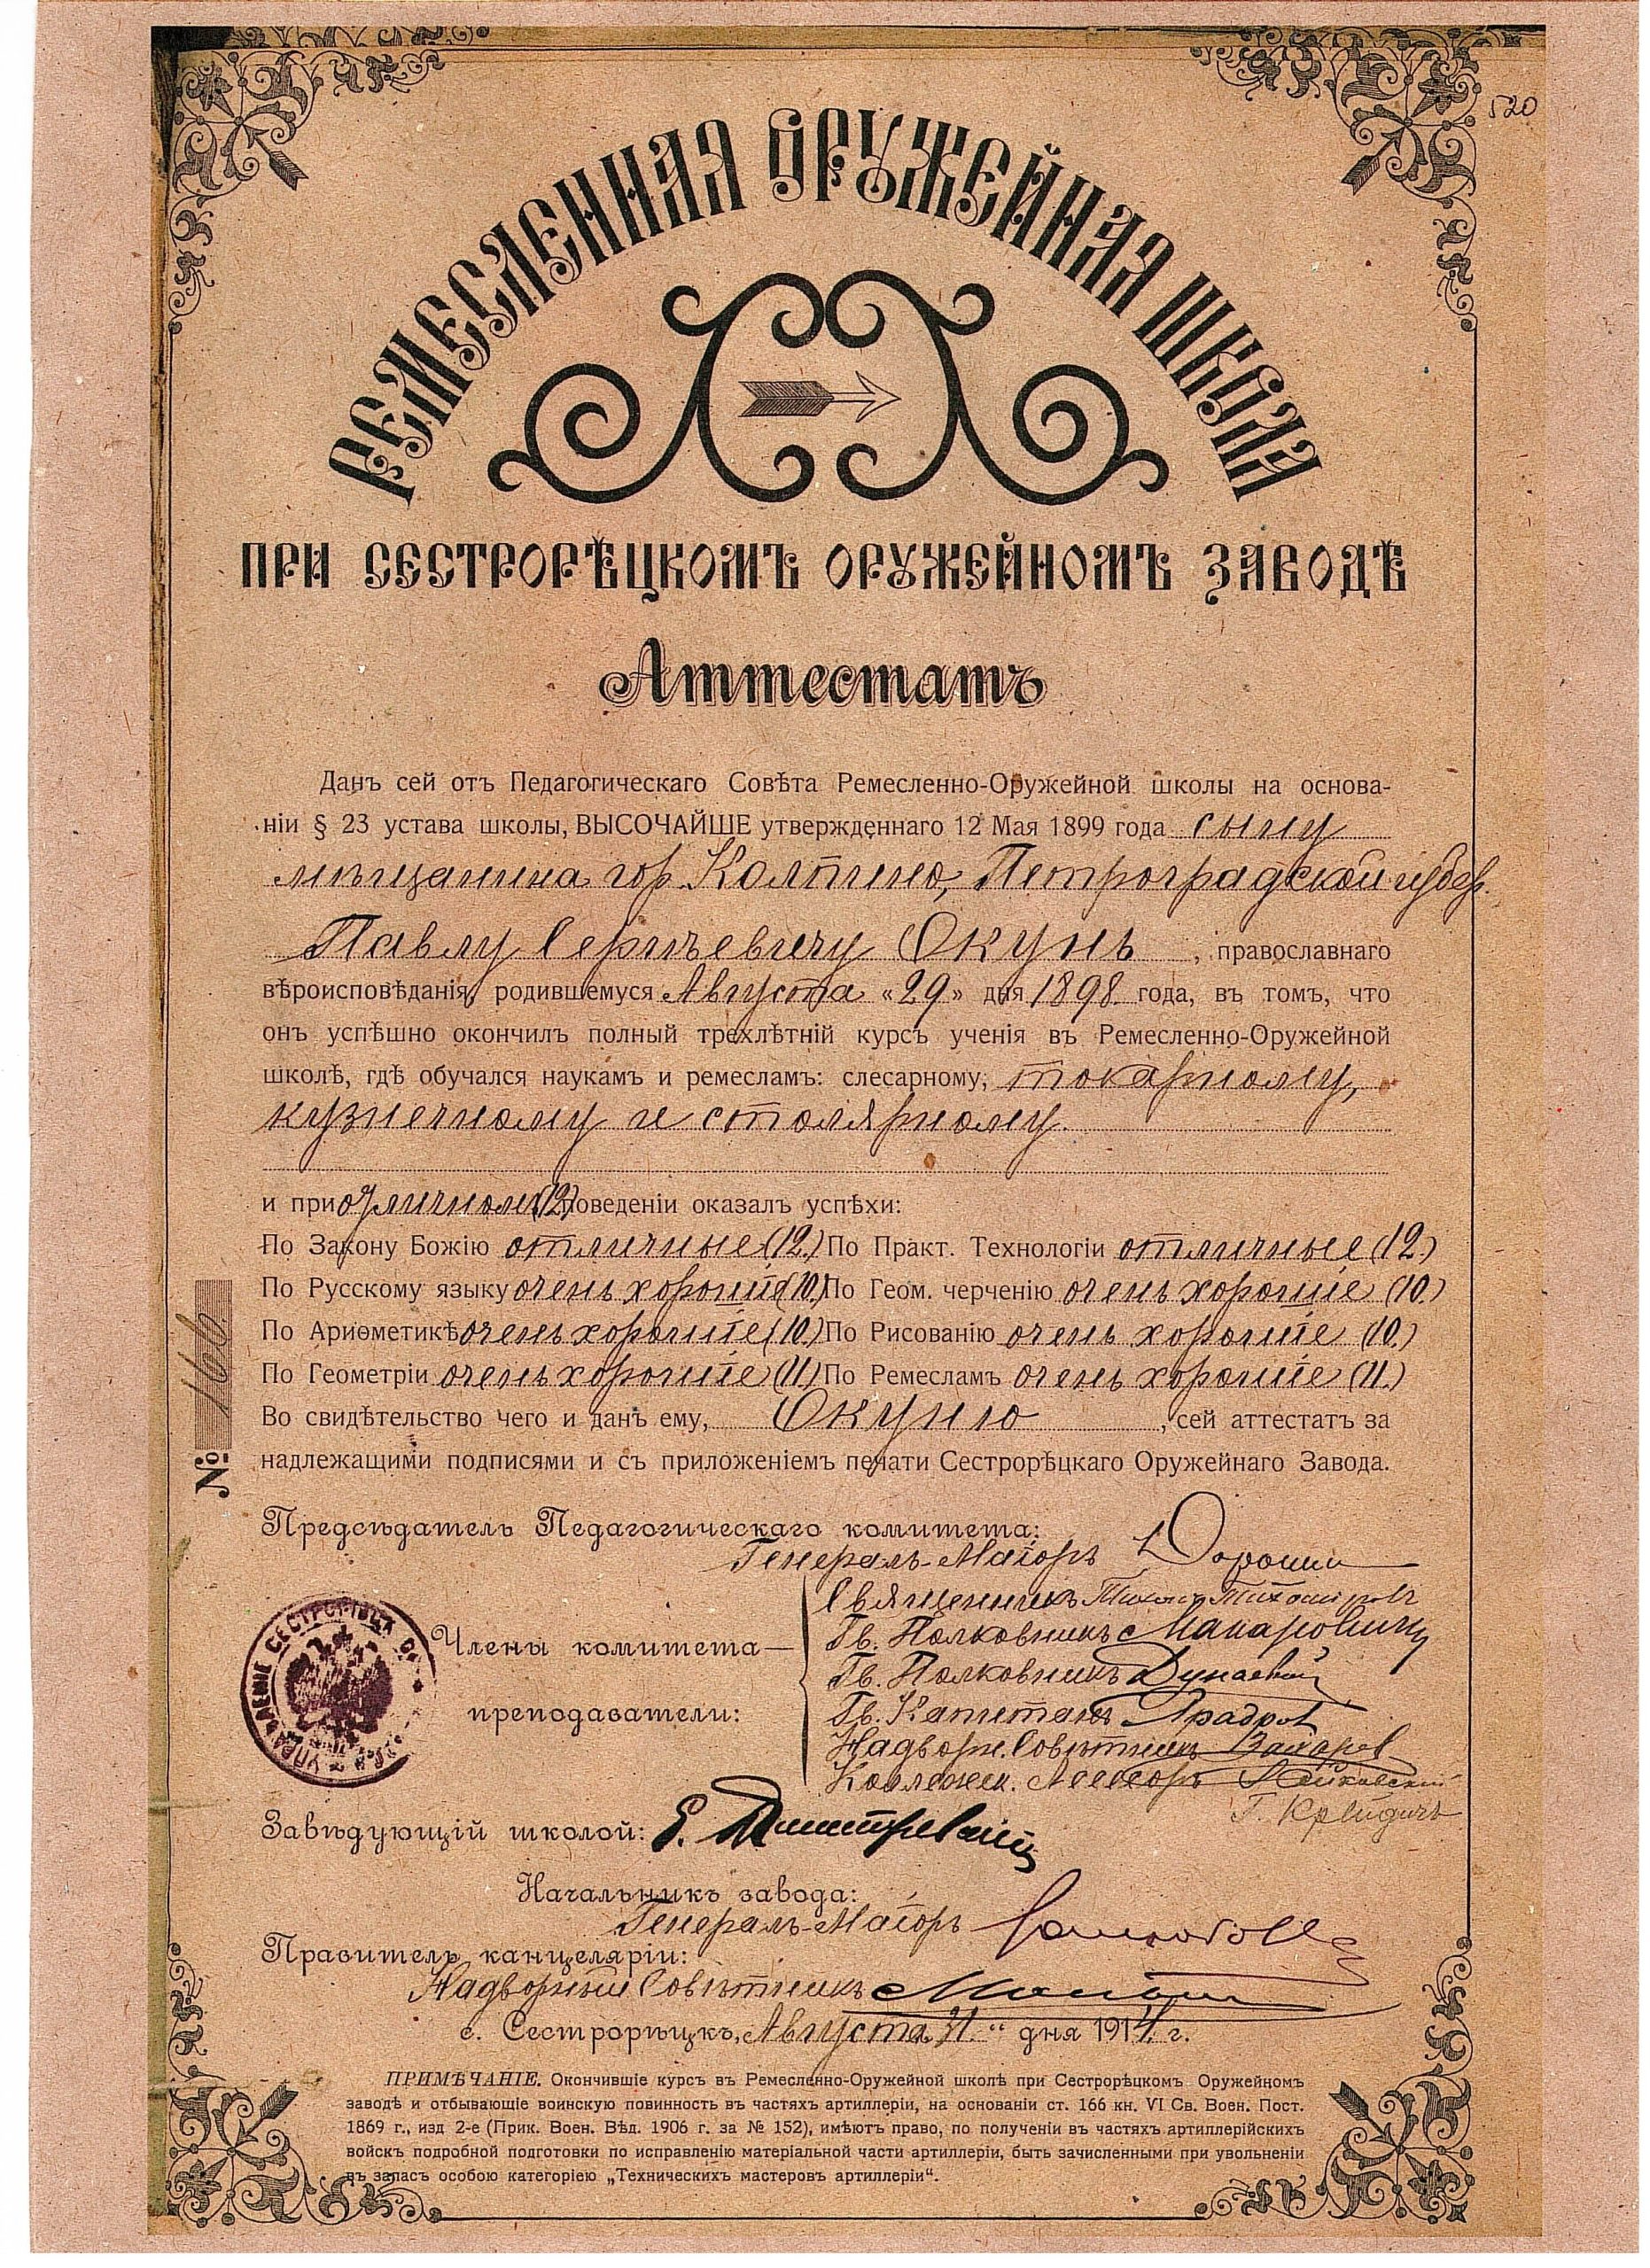 520
РЕМЕСЛЕННАЯ ОРУЖЕЙНАЯ ШКОЛА
ПРИ СЕСТРОРѢЦКОМЪ ОРУЖЕЙНОМЪ ЗАВОДѢ
Аттестатъ
Данъ сей отъ Педагогическаго Совѣта Ремесленно-Оружейной школы на основа-
ніи § 23 устава школы, ВЫСОЧАЙШЕ утвержденнаго 12 Мая 1899 года сыну
мѣщанина гор. Колпино, Петроградской губер.
Павлу Сергѣевичу Окунь, православнаго
вѣроисповѣданія, родившемуся Августа «29» дня 1898 года, въ томъ, что
онъ успѣшно окончилъ полный трехлѣтній курсъ ученія въ Ремесленно-Оружейной
школѣ, гдѣ обучался наукамъ и ремесламъ: слесарному, токарному,
кузнечному и столярному.
и при отличномъ (12) поведеніи оказалъ успѣхи:
По Закону Божію отличные (12.) По Практ. Технологіи отличные (12.)
По Русскому языку очень хорошіе (10.) По Геом. черченію очень хорошіе (10.)
По Ариѳметикѣ очень хорошіе (10.) По Рисованію очень хорошіе (10.)
По Геометріи очень хорошіе (11.) По Ремесламъ очень хорошіе (11.)
Во свидѣтельство чего и данъ ему, Окуню, сей аттестатъ за
надлежащими подписями и съ приложеніемъ печати Сестрорѣцкаго Оружейнаго Завода.
№ 166
Предсѣдатель Педагогическаго комитета:
Генералъ-Маіоръ
Члены комитета —
преподаватели:
Священникъ Тихонъ Тихомировъ
Гв. Полковникъ Макаровичъ
Гв. Полковникъ Дунаевскій
Гв. Капитанъ
Надворн. Совѣтникъ Захаровъ
Коллежск. Ассесоръ
УПРАВЛЕНІЕ СЕСТРОРѢЦК
Завѣдующій школой: Е. Дмитревскій
Начальникъ завода:
Генералъ-Маіоръ
Правитель канцеляріи:
Надворный Совѣтникъ
с. Сестрорѣцкъ, Августа 31 " дня 1914 г.
ПРИМѢЧАНІЕ. Окончившіе курсъ въ Ремесленно-Оружейной школѣ при Сестрорѣцкомъ Оружейномъ
заводѣ и отбывающіе воинскую повинность въ частяхъ артиллеріи, на основаніи ст. 166 кн. VI Св. Воен. Пост.
1869 г., изд 2-е (Прик. Воен. Вѣд. 1906 г. за № 152), имѣютъ право, по полученіи въ частяхъ артиллерійскихъ
войскъ подробной подготовки по исправленію матеріальной части артиллеріи, быть зачисленными при увольненіи
въ запасъ особою категоріею „Техническихъ мастеровъ артиллеріи“.